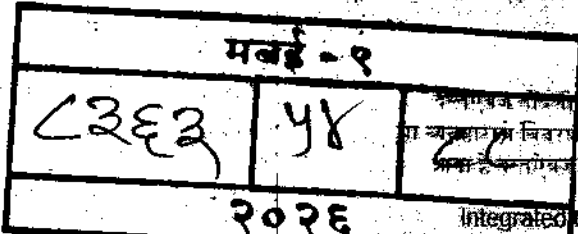 मबई - ९
८३६३ ५४ ८८
२०२६
Integrated